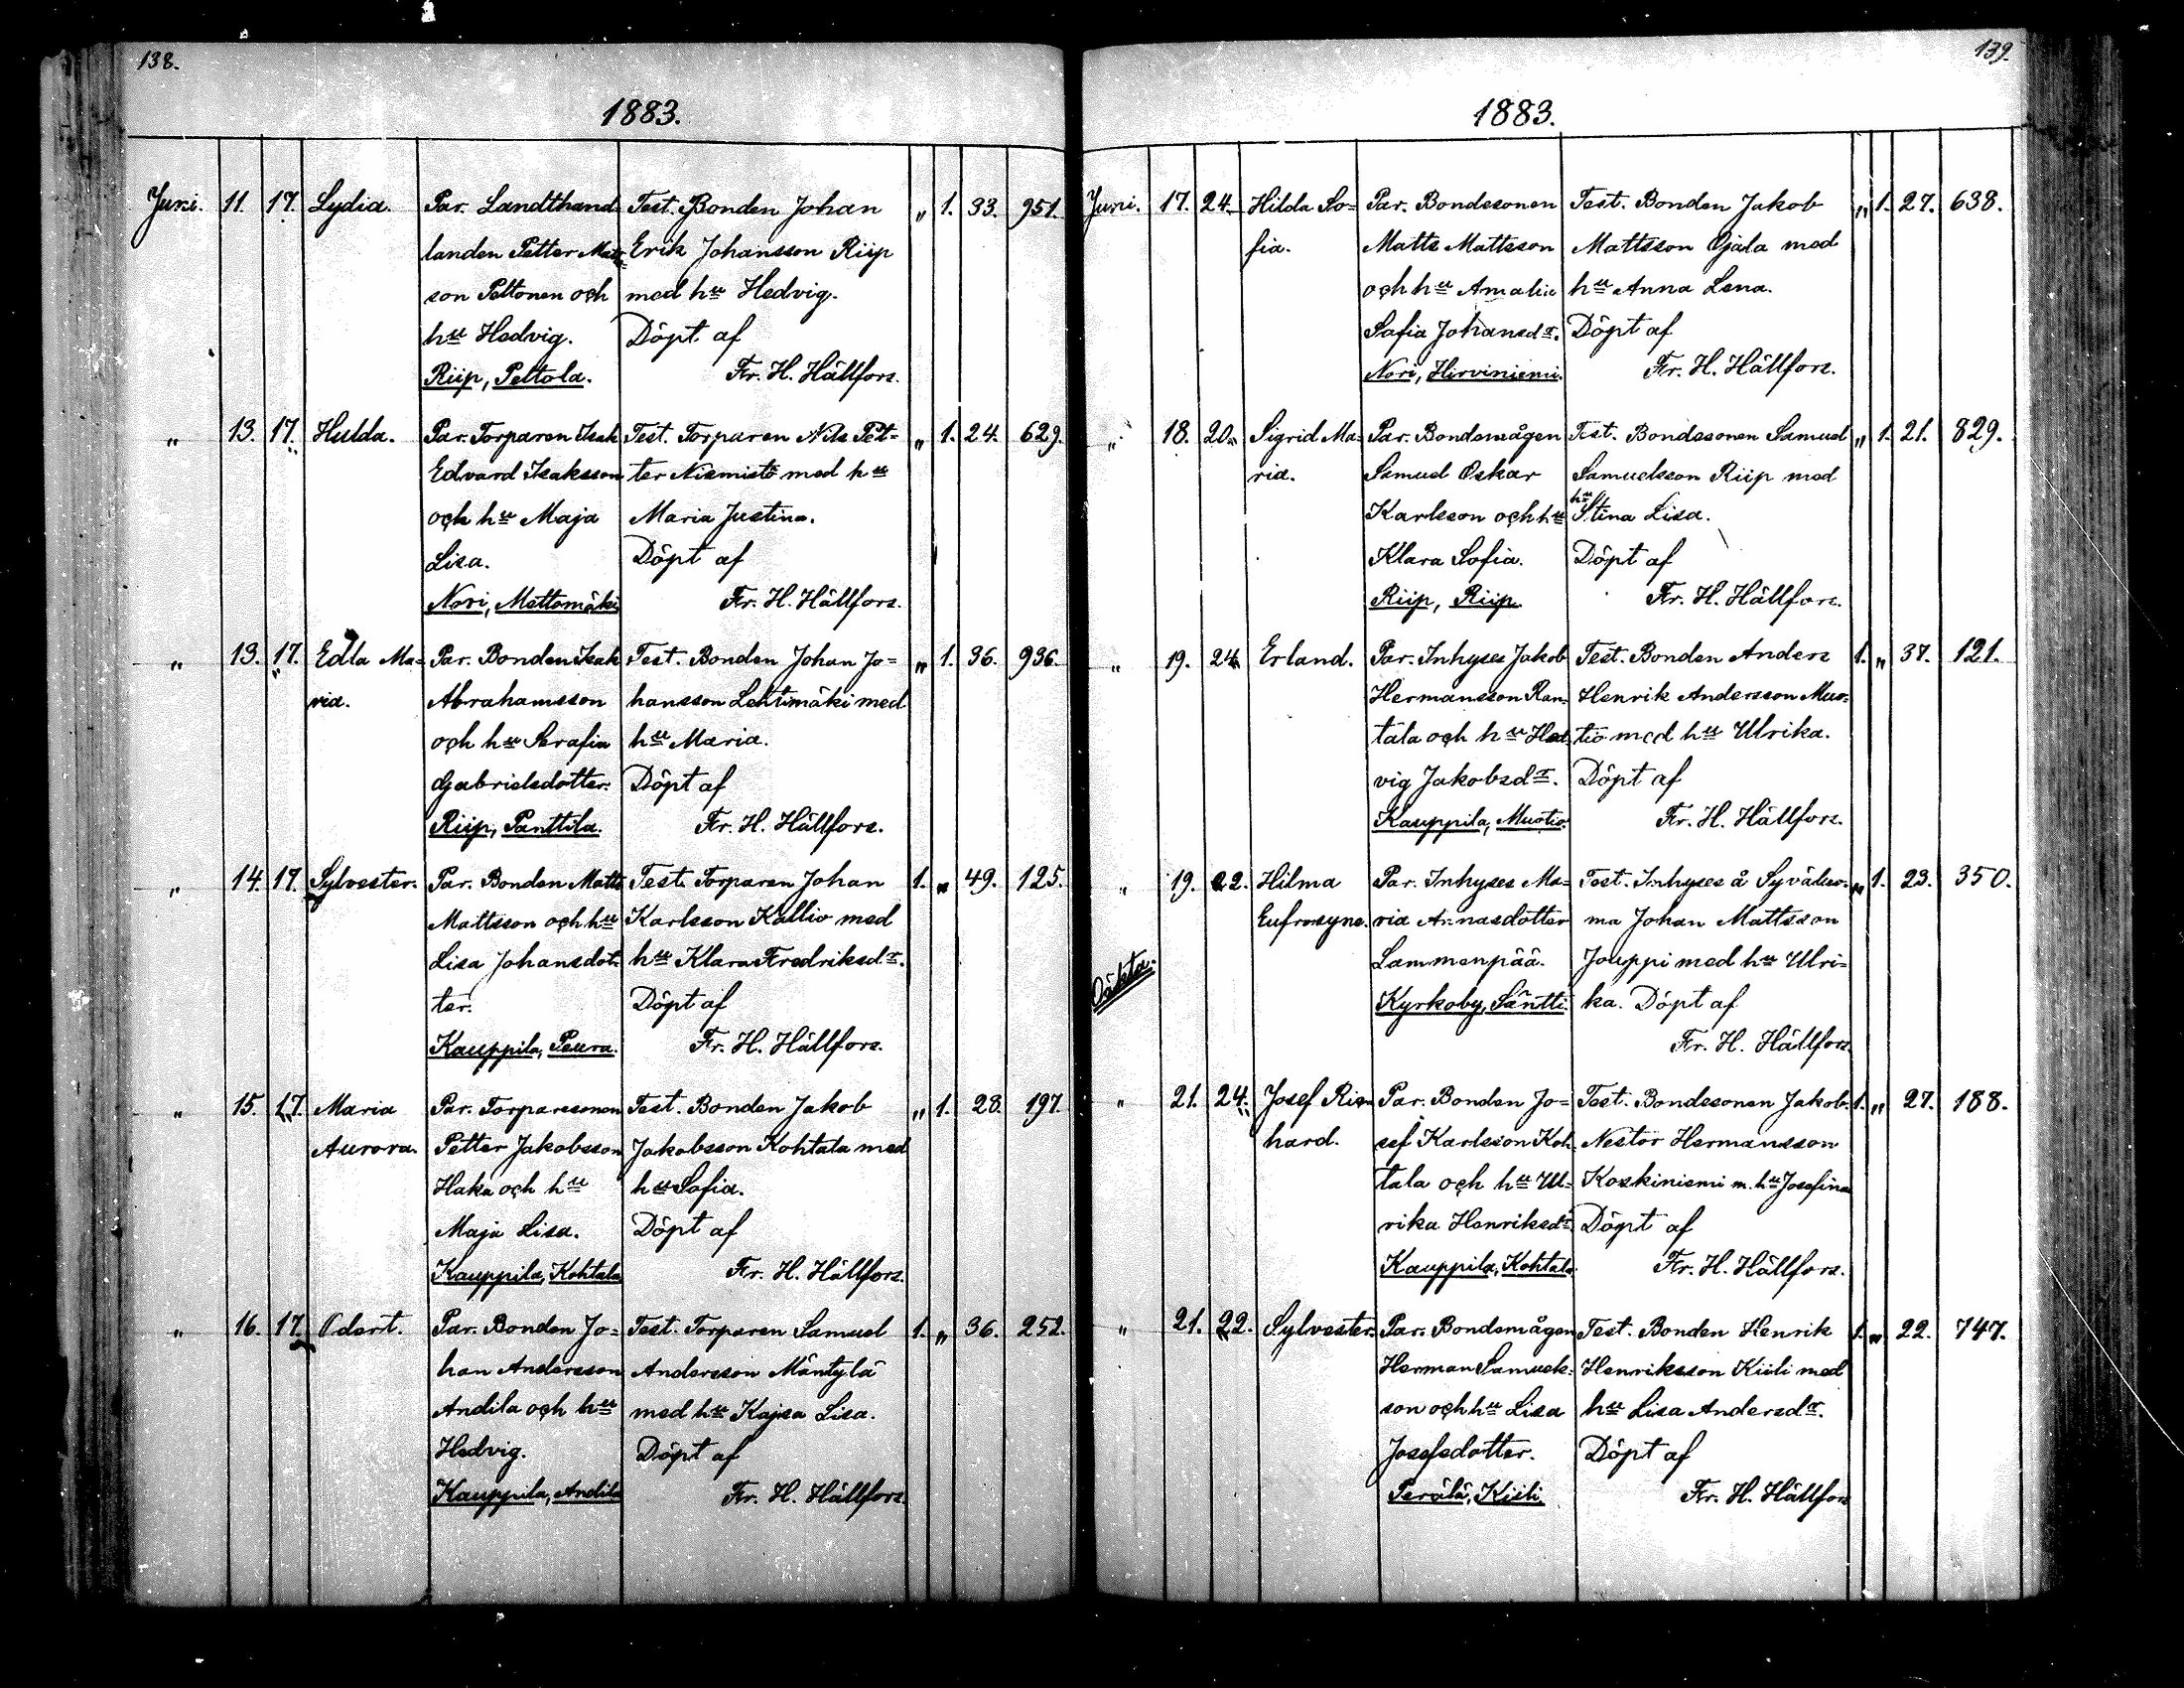 138.
1883.
Juni. 11. 17. Lydia. Par. Landthand Test. Bonden Johan „ 1. 33. 951.
landen Petter Matts= Erik Johansson Riip
son Peltonen och med hu Hedvig.
hu Hedvig. Döpt af
Riip, Peltola. Fr. H. Hällfors.
„ 13. 17. Hulda. Par. Torparen Isak Test. Torparen Nils Pet= „ 1. 24. 629.
Edvard Isaksson ter Niemistö med hu
och hu Maja Maria Justina.
Lisa. Döpt af
Nori, Mattomäki Fr. H. Hällfors.
„ 13. 17. Edla Ma= Par. Bonden Isak Test. Bonden Johan Jo= „ 1. 36. 936.
ria. Abrahamsson hansson Lehtimäki med
och hu Serafia hu Maria.
Gabrielsdotter. Döpt af
Riip, Panttila. Fr. H. Hällfors.
„ 14. 17. Sylvester. Par. Bonden Matts Test. Torparen Johan 1. „ 49. 125.
Mattsson och hu Karlsson Kallio med
Lisa Johansdot= hu Klara Fredriksdr.
ter. Döpt af
Kauppila, Peura. Fr. H. Hällfors.
„ 15. 17. Maria Par. Torparesonen Test. Bonden Jakob „ 1. 28. 197.
Aurora. Petter Jakobsson Jakobsson Kohtala med
Haka och hu hu Sofia.
Maja Lisa. Döpt af
Kauppila, Kohtala Fr. H. Hällfors.
„ 16. 17. Odert. Par. Bonden Jo= Test. Torparen Samuel 1. „ 36. 252.
han Andersson Andersson Mäntylä
Andila och hu med hu Kajsa Lisa.
Hedvig. Döpt af
Kauppila, Andila Fr. H. Hällfors.
139.
1883.
Juni. 17. 24. Hilda So= Par. Bondesonen Test. Bonden Jakob „ 1. 27. 638.
fia. Matts Mattsson Mattsson Ojala med
och hu Amalia hu Anna Lena.
Sofia Johansdr. Döpt af
Nori, Hirviniemi. Fr. H. Hällfors.
„ 18. 20. Sigrid Ma= Par. Bondemågen Test. Bondesonen Samuel „ 1. 21. 829.
ria. Samuel Oskar Samuelsson Riip med
Karlsson och hu hu Stina Lisa.
Klara Sofia. Döpt af
Riip, Riip. Fr. H. Hällfors.
„ 19. 24. Erland. Par. Inhyses Jakob Test. Bonden Anders 1. „ 37. 121.
Hermansson Ran= Henrik Andersson Muo=
tala och hu Hed= tio med hu Ulrika.
vig Jakobsdr. Döpt af
Kauppila, Muotio. Fr. H. Hällfors.
„ 19. 22. Hilma Par. Inhyses Ma= Test. Inhyses å Syväluo= „ 1. 23. 350.
Eufrosyne. ria Annasdotter ma Johan Mattsson
Oäkta. Lammenpää. Jouppi med hu Ulri=
Kyrkoby, Säntti. ka. Döpt af
Fr. H. Hällfors.
„ 21. 24. Josef Rik= Par. Bonden Jo= Test. Bondesonen Jakob 1. „ 27. 188.
hard. sef Karlsson Koh= Nestor Hermansson
tala och hu Ul= Koskiniemi m. hu Josefina
rika Henriksdr. Döpt af
Kauppila, Kohtala. Fr. H. Hällfors.
„ 21. 22. Sylvester. Par. Bondemågen Test. Bonden Henrik 1. „ 22. 747.
Herman Samuels= Henriksson Kiili med
son och hu Lisa hu Lisa Andersdr.
Josefsdotter. Döpt af
Perälä, Kiili. Fr. H. Hällfors